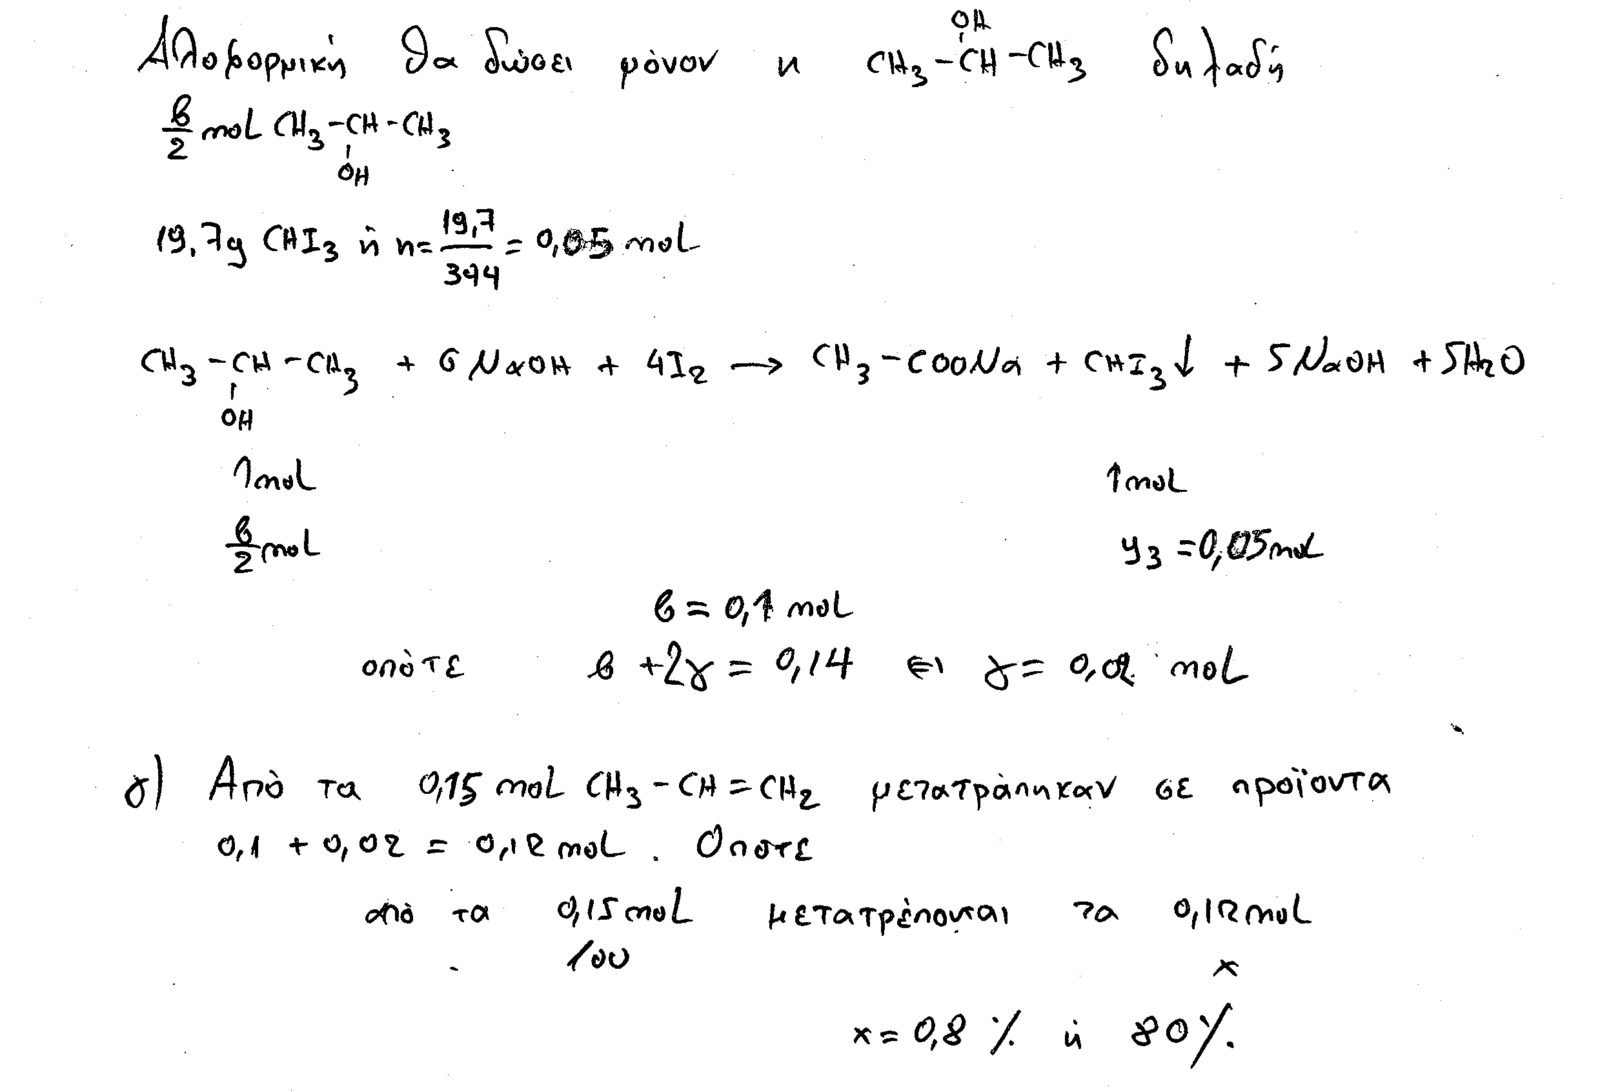 Αλοφορμική θα δώσει μόνον η CH3-CH(OH)-CH3 δηλαδή
β/2 mol CH3-CH(OH)-CH3
19,7g CHI3 ή n= 19,7/394 = 0,05 mol
CH3-CH(OH)-CH3 + 6NaOH + 4I2 → CH3-COONa + CHI3↓ + 5NaOH + 5H2O
1mol 1mol
β/2 mol y3 = 0,05mol
β = 0,1 mol
οπότε β + 2γ = 0,14 ει γ = 0,02 mol
γ) Από τα 0,15 mol CH3-CH=CH2 μετατράπηκαν σε προϊοντα
0,1 + 0,02 = 0,12 mol. Οποτε
από τα 0,15mol μετατρέπονται τα 0,12mol
100 x
x = 0,8 % ή 80%.